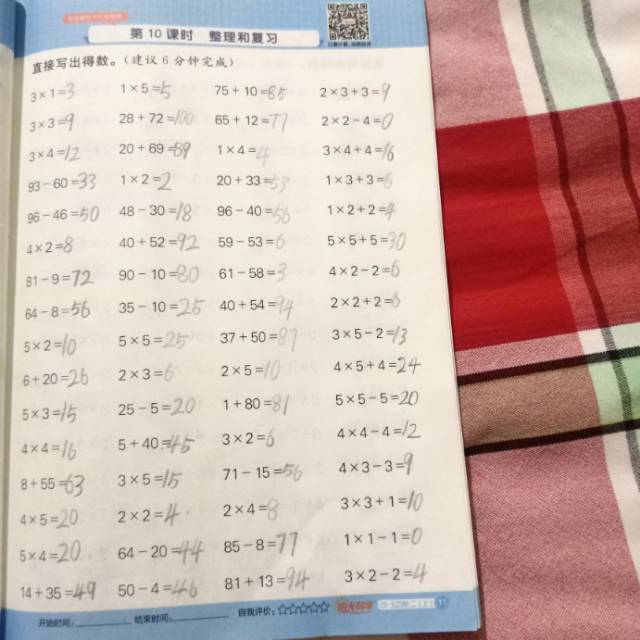 第 10 课时 整理和复习
直接写出得数。(建议 6 分钟完成)
3×1=3 1×5=5 75+10=85 2×3+3=9
3×3=9 28+72=100 65+12=77 2×2-4=0
3×4=12 20+69=89 1×4=4 3×4+4=16
93-60=33 1×2=2 20+33=53 1×3+3=6
96-46=50 48-30=18 96-40=56 1×2+2=4
4×2=8 40+52=92 59-53=6 5×5+5=30
81-9=72 90-10=80 61-58=3 4×2-2=6
64-8=56 35-10=25 40+54=94 2×2+2=6
5×2=10 5×5=25 37+50=87 3×5-2=13
6+20=26 2×3=6 2×5=10 4×5+4=24
5×3=15 25-5=20 1+80=81 5×5-5=20
4×4=16 5+40=45 3×2=6 4×4-4=12
8+55=63 3×5=15 71-15=56 4×3-3=9
4×5=20 2×2=4 2×4=8 3×3+1=10
5×4=20 64-20=44 85-8=77 1×1-1=0
14+35=49 50-4=46 81+13=94 3×2-2=4
开始时间: 结束时间: 自我评价:☆☆☆☆☆ 阳光同学 11